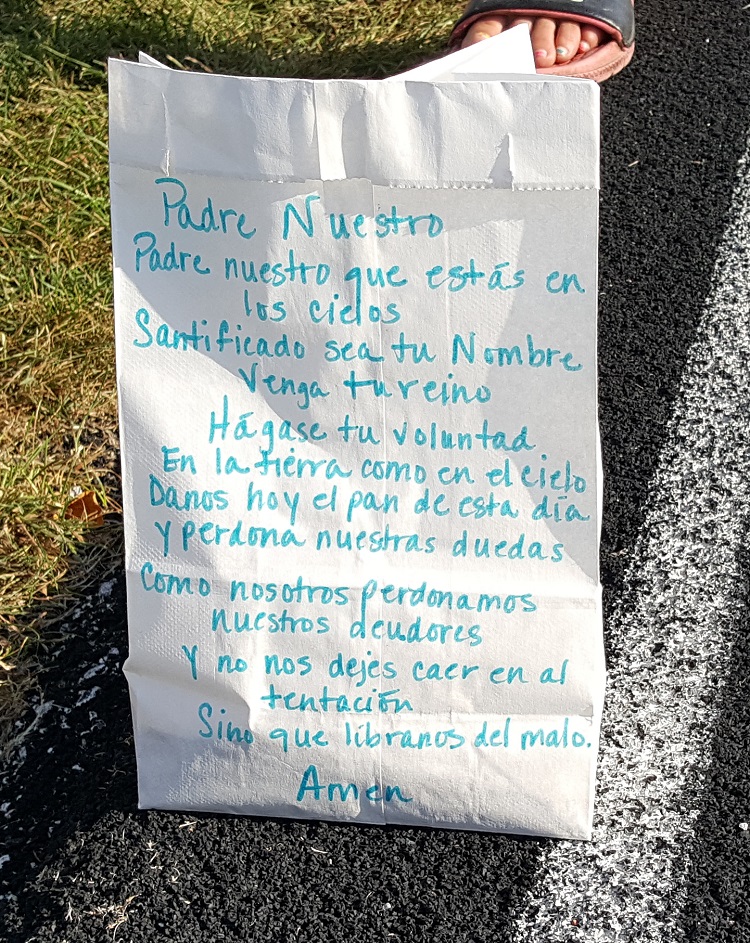 Padre Nuestro
Padre nuestro que estás en
los cielos
Santificado sea tu Nombre
Venga tu reino
Hágase tu voluntad
En la tierra como en el cielo
Danos hoy el pan de esta día
y perdona nuestras duedas
Como nosotros perdonamos
nuestros deudores
Y no nos dejes caer en al
tentación
Sino que libranos del malo.
Amen